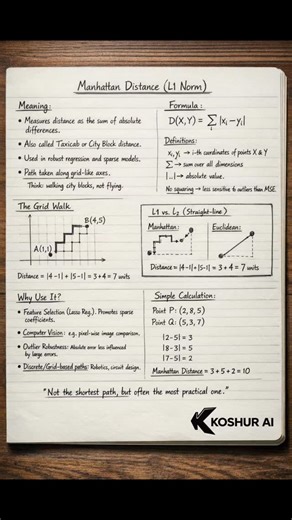 Manhattan Distance (L1 Norm)
Meaning:
• Measures distance as the sum of absolute
differences.
• Also called Taxicab or City Block distance.
• Used in robust regression and sparse models.
• Path taken along grid-like axes.
Think: walking city blocks, not flying.
Formula:
D(X,Y) = Σ |xi - yi|
i
Definitions:
xi, yi → i-th coordinates of points X & Y
Σ → sum over all dimensions
|...| → absolute value.
No squaring → less sensitive to outliers than MSE.
The Grid Walk
B(4,5)
A(1,1)
Distance = |4-1| + |5-1| = 3+4 = 7 units
L1 vs. L2 (Straight-line)
Manhattan:
Euclidean:
Distance = |4-1| + |5-1| = 3+4 = 7 units
Why Use It?
• Feature Selection (Lasso Reg.). Promotes sparse
coefficients.
• Computer Vision: e.g. pixel-wise image comparison.
• Outlier Robustness: Absolute error less influenced
by large errors.
• Discrete/Grid-based paths: Robotics, circuit design.
Simple Calculation:
Point P: (2,8,5)
Point Q: (5,3,7)
|2-5| = 3
|8-3| = 5
|7-5| = 2
Manhattan Distance = 3+5+2 = 10
"Not the shortest path, but often the most practical one."
KOSHUR AI